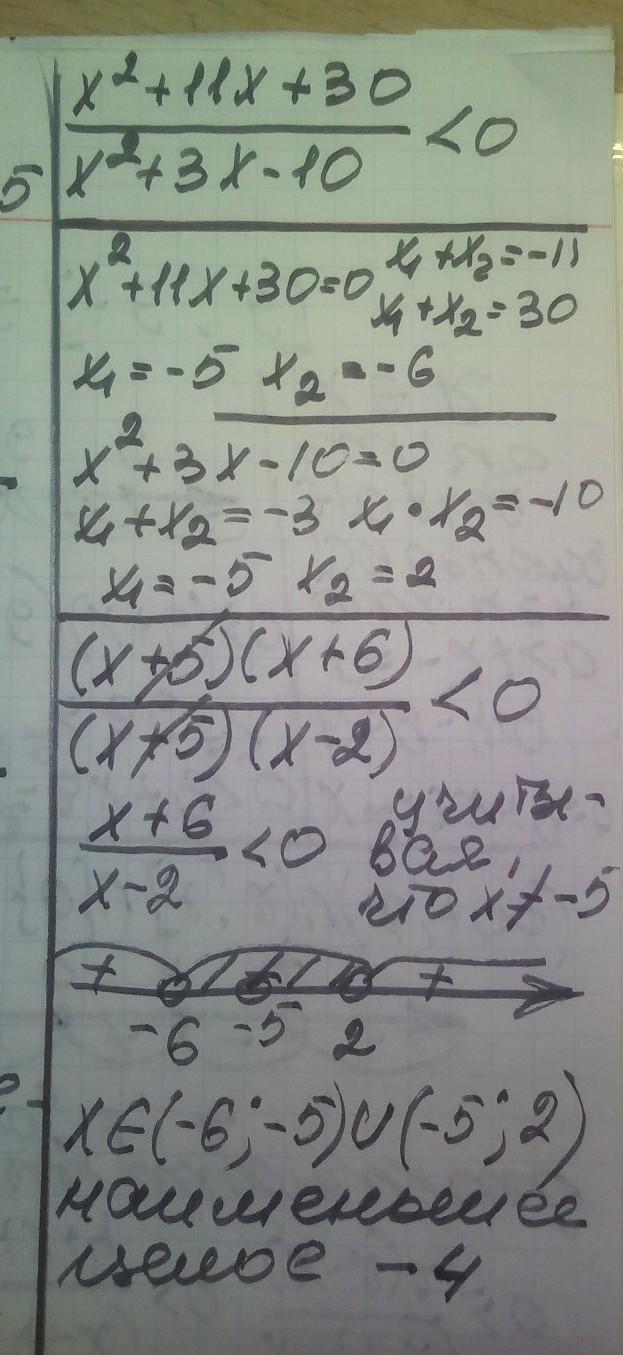 x²+11x+30
x²+3x-10 <0
5
x²+11x+30=0 x₁+x₂=-11
x₁+x₂=30
x₁=-5 x₂=-6
x²+3x-10=0
x₁+x₂=-3 x₁·x₂=-10
x₁=-5 x₂=2
(x+5)(x+6)
(x+5)(x-2) <0
x+6
x-2 <0
учиты-
вая,
что x≠-5
+ +
-6 -5 2
x∈(-6;-5)∪(-5;2)
наименьшее
целое -4